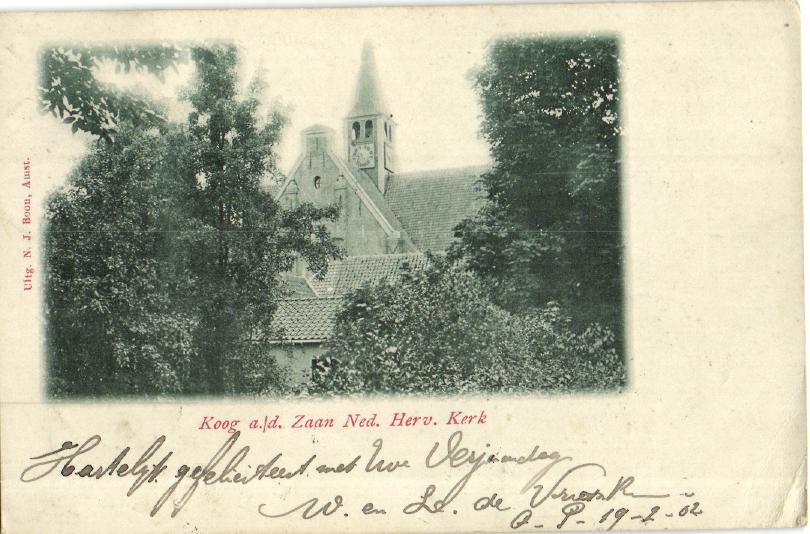 Uitg. N. J. Boon, Amst.
Koog a./d. Zaan Ned. Herv. Kerk
Hartelijk gefeliciteert met Uwe Verjaardag
W. en L. de Vries
19-2-02